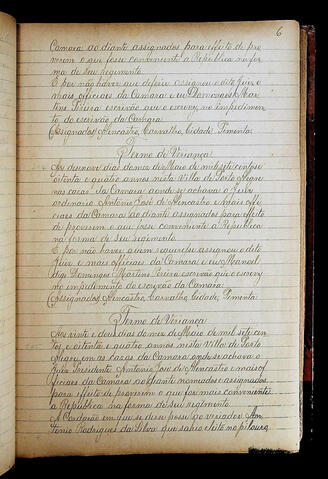 6
Camara ao diante assignados para effeito de pro
verem o que fosse conveniente a Republica na for
ma de seu regimento.
E por não haver que deferir assignou o dito Juiz e
mais officiaes da Camara e eu Domingos Mar
tins Pereira escrivão que o escrevy no impedimen
to do escrivão da Camara.
Assignados, Alencastre, Carvalho, Cidade, Pimenta.
Termo de Veriança
Aos desnove dias do mez de Maio de mil sete centos e
oitenta e quatro annos nesta Villa de Porto Alegre
nas casas da Camara aonde se achava o Juiz
ordinario Antonio José de Alencastre e mais offi
ciaes da Camara ao diante assignados para effeito
de proverem o que fosse conveniente a Republica
na forma de seu regimento.
E por não haver quem requeresse assignou o dito
Juiz e mais officiaes da Camara e eu Manoel
digo Domingos Martins Pereira escrivão que o escrevy
no impedimento do escrivão da Camara.
Assignados, Alencastre, Carvalho, Cidade, Pimenta.
Termo de Veriança
Aos vinte e dous dias do mez de Maio de mil sete cen
tos e oitenta e quatro annos nesta Villa de Porto
Alegre, em as casas da Camara onde se achava o
Juiz Presidente Antonio José de Alencastre e mais of
ficiaes da Camara ao diante nomeados e assignados,
para effeito de proverem o que for mais conveniente
a Republica na forma de seu regimento
em que se deu posse ao veriador An
tonio Rodrigues da Silva que sahio eleito no pilouro